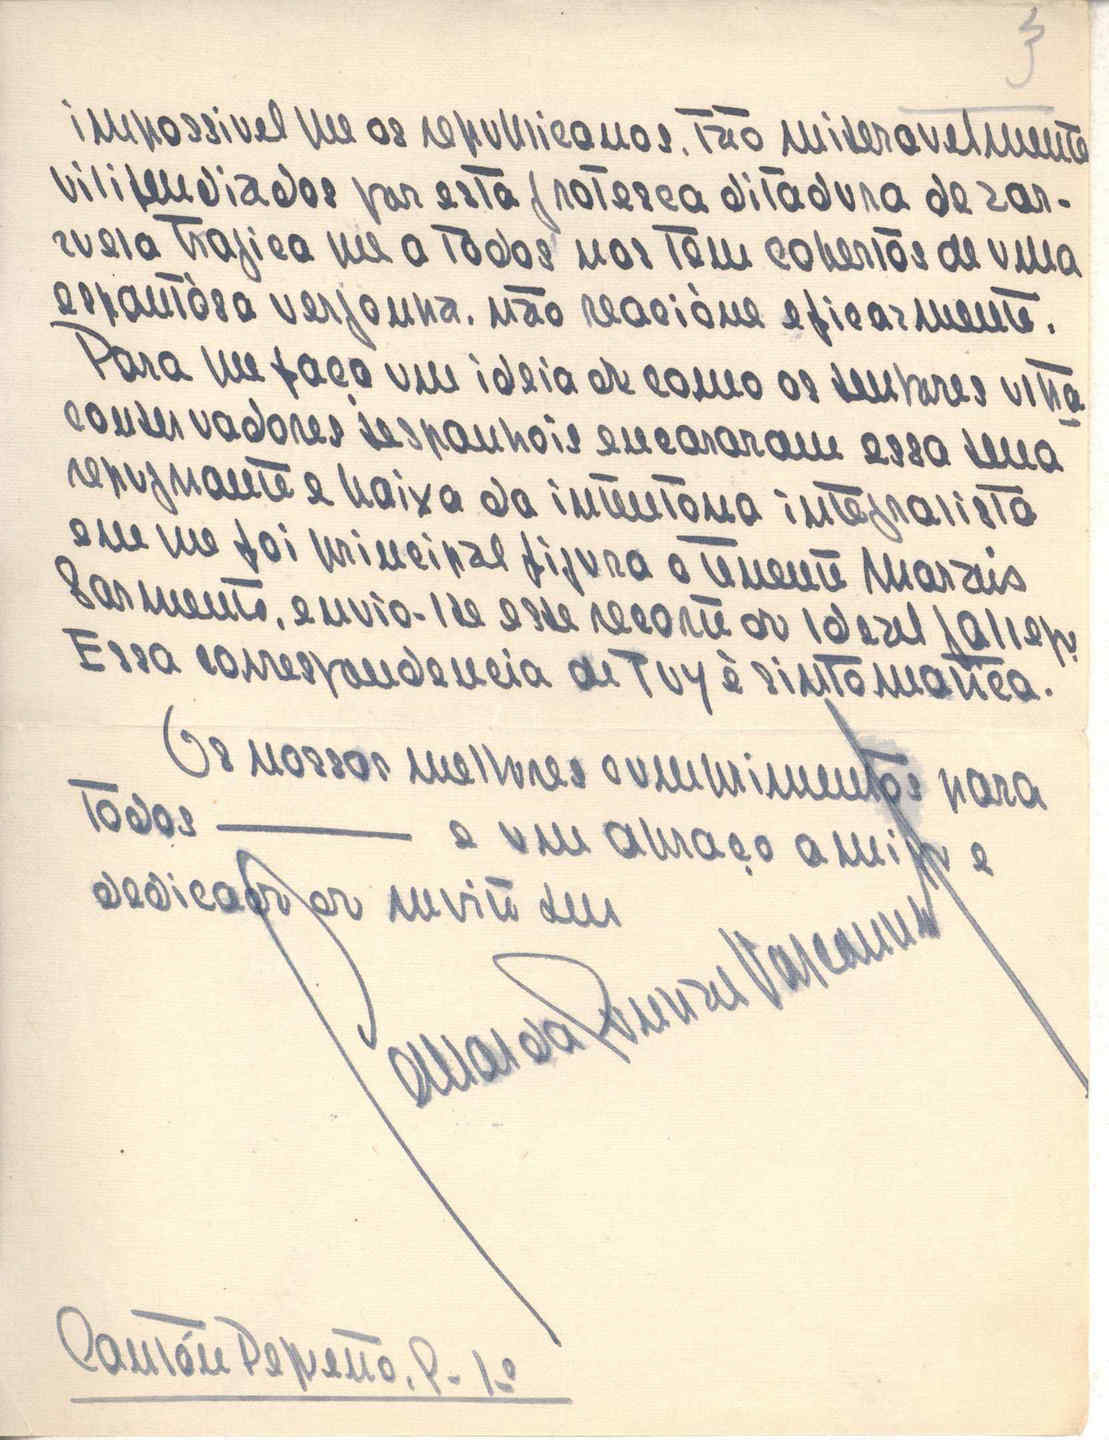 3
impossivel que os republicanos, tão miseravelmente
vilipendiados por esta grotesca ditadura de zar-
zuela tragica que a todos nos tem cobertos de uma
espantòsa vergonha, não reaciòne eficazmente.
Para que faça um ideia de como os senhores ultra
conservadores espanhois encararam essa cena
repugnante e baixa da intentona integralista
em que foi principal figura o tenente Moraïs
Sarmento, envio-lhe esse recorte do Ideal Gallego.
Essa correspondencia de Tuy è sintomatica.
Os nossos melhores cumprimentos para
todos ——— e um abraço amigo e
dedicado do muito seu
Amar da Pimentel Vasconcelos
Cantón Pequeño, 9-1º